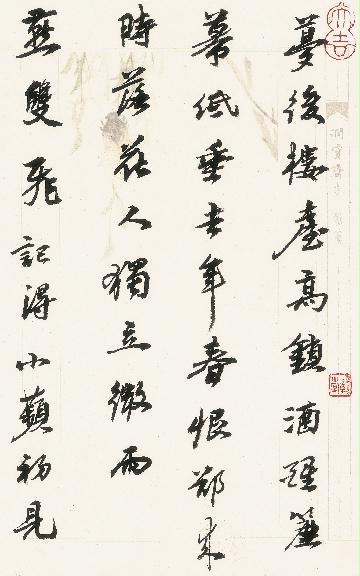 夢後樓臺高鎖酒醒簾
幕低垂去年春恨卻来
時落花人獨立微雨
燕雙飛記得小蘋初見